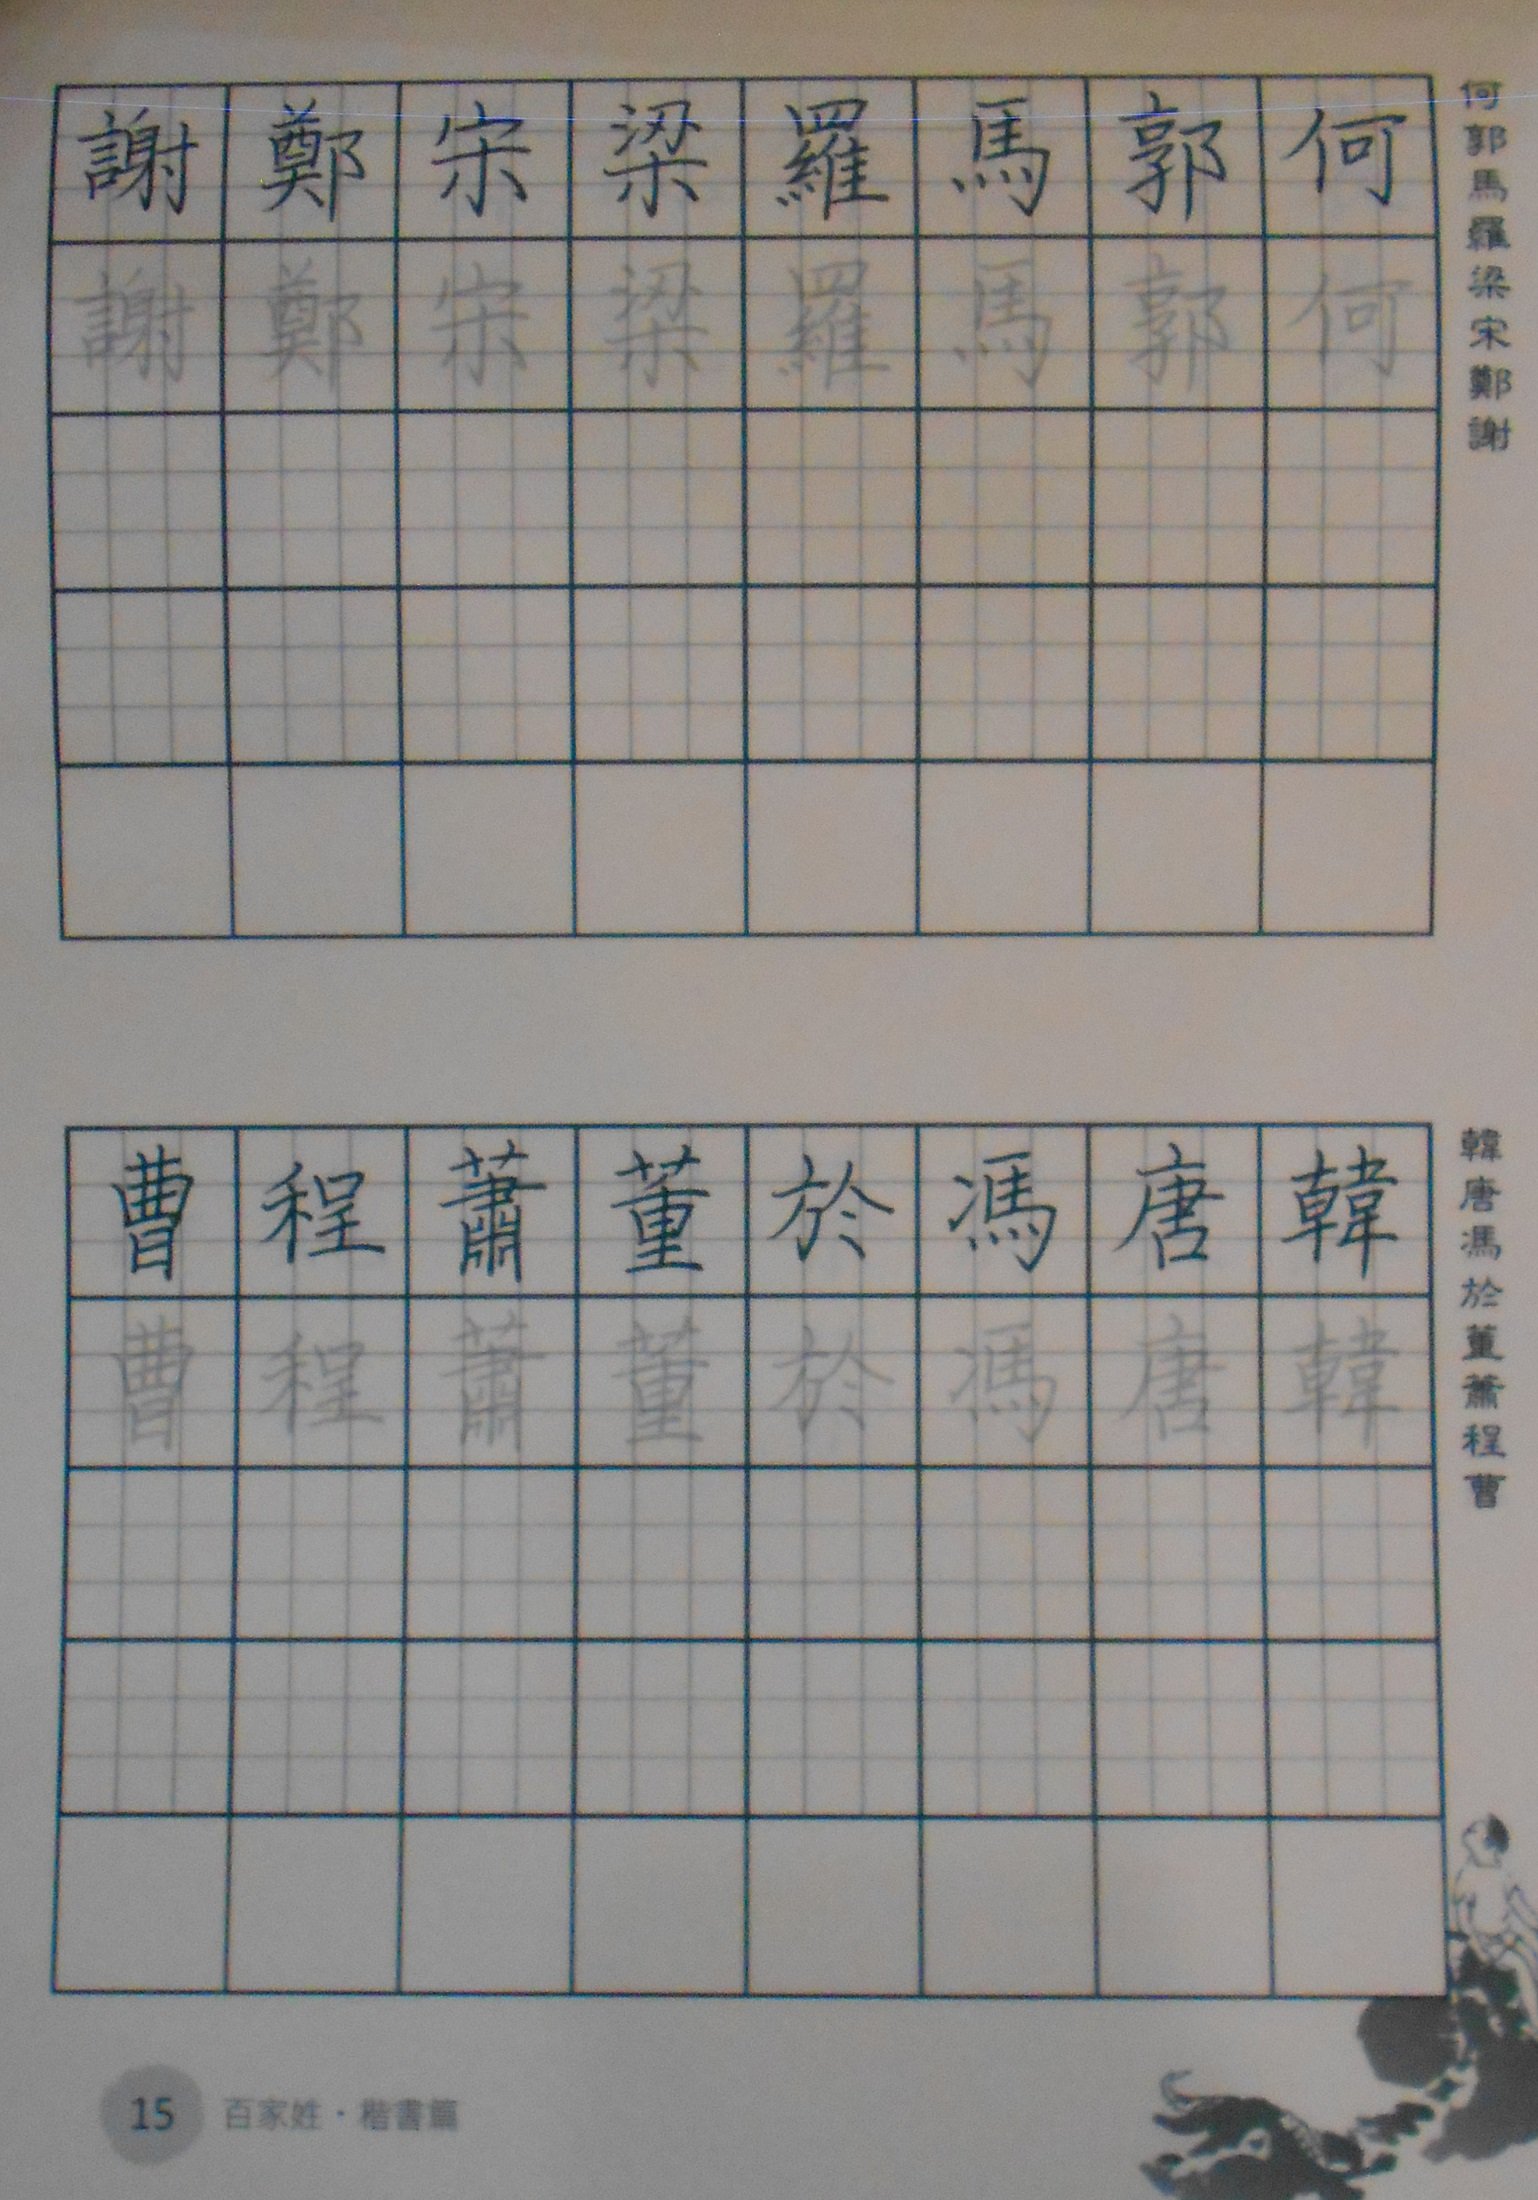 何郭馬羅梁宋鄭謝
何郭馬羅梁宋鄭謝
何郭馬羅梁宋鄭謝
韓唐馮於董蕭程曹
韓唐馮於董蕭程曹
韓唐馮於董蕭程曹
15 百家姓·楷書篇